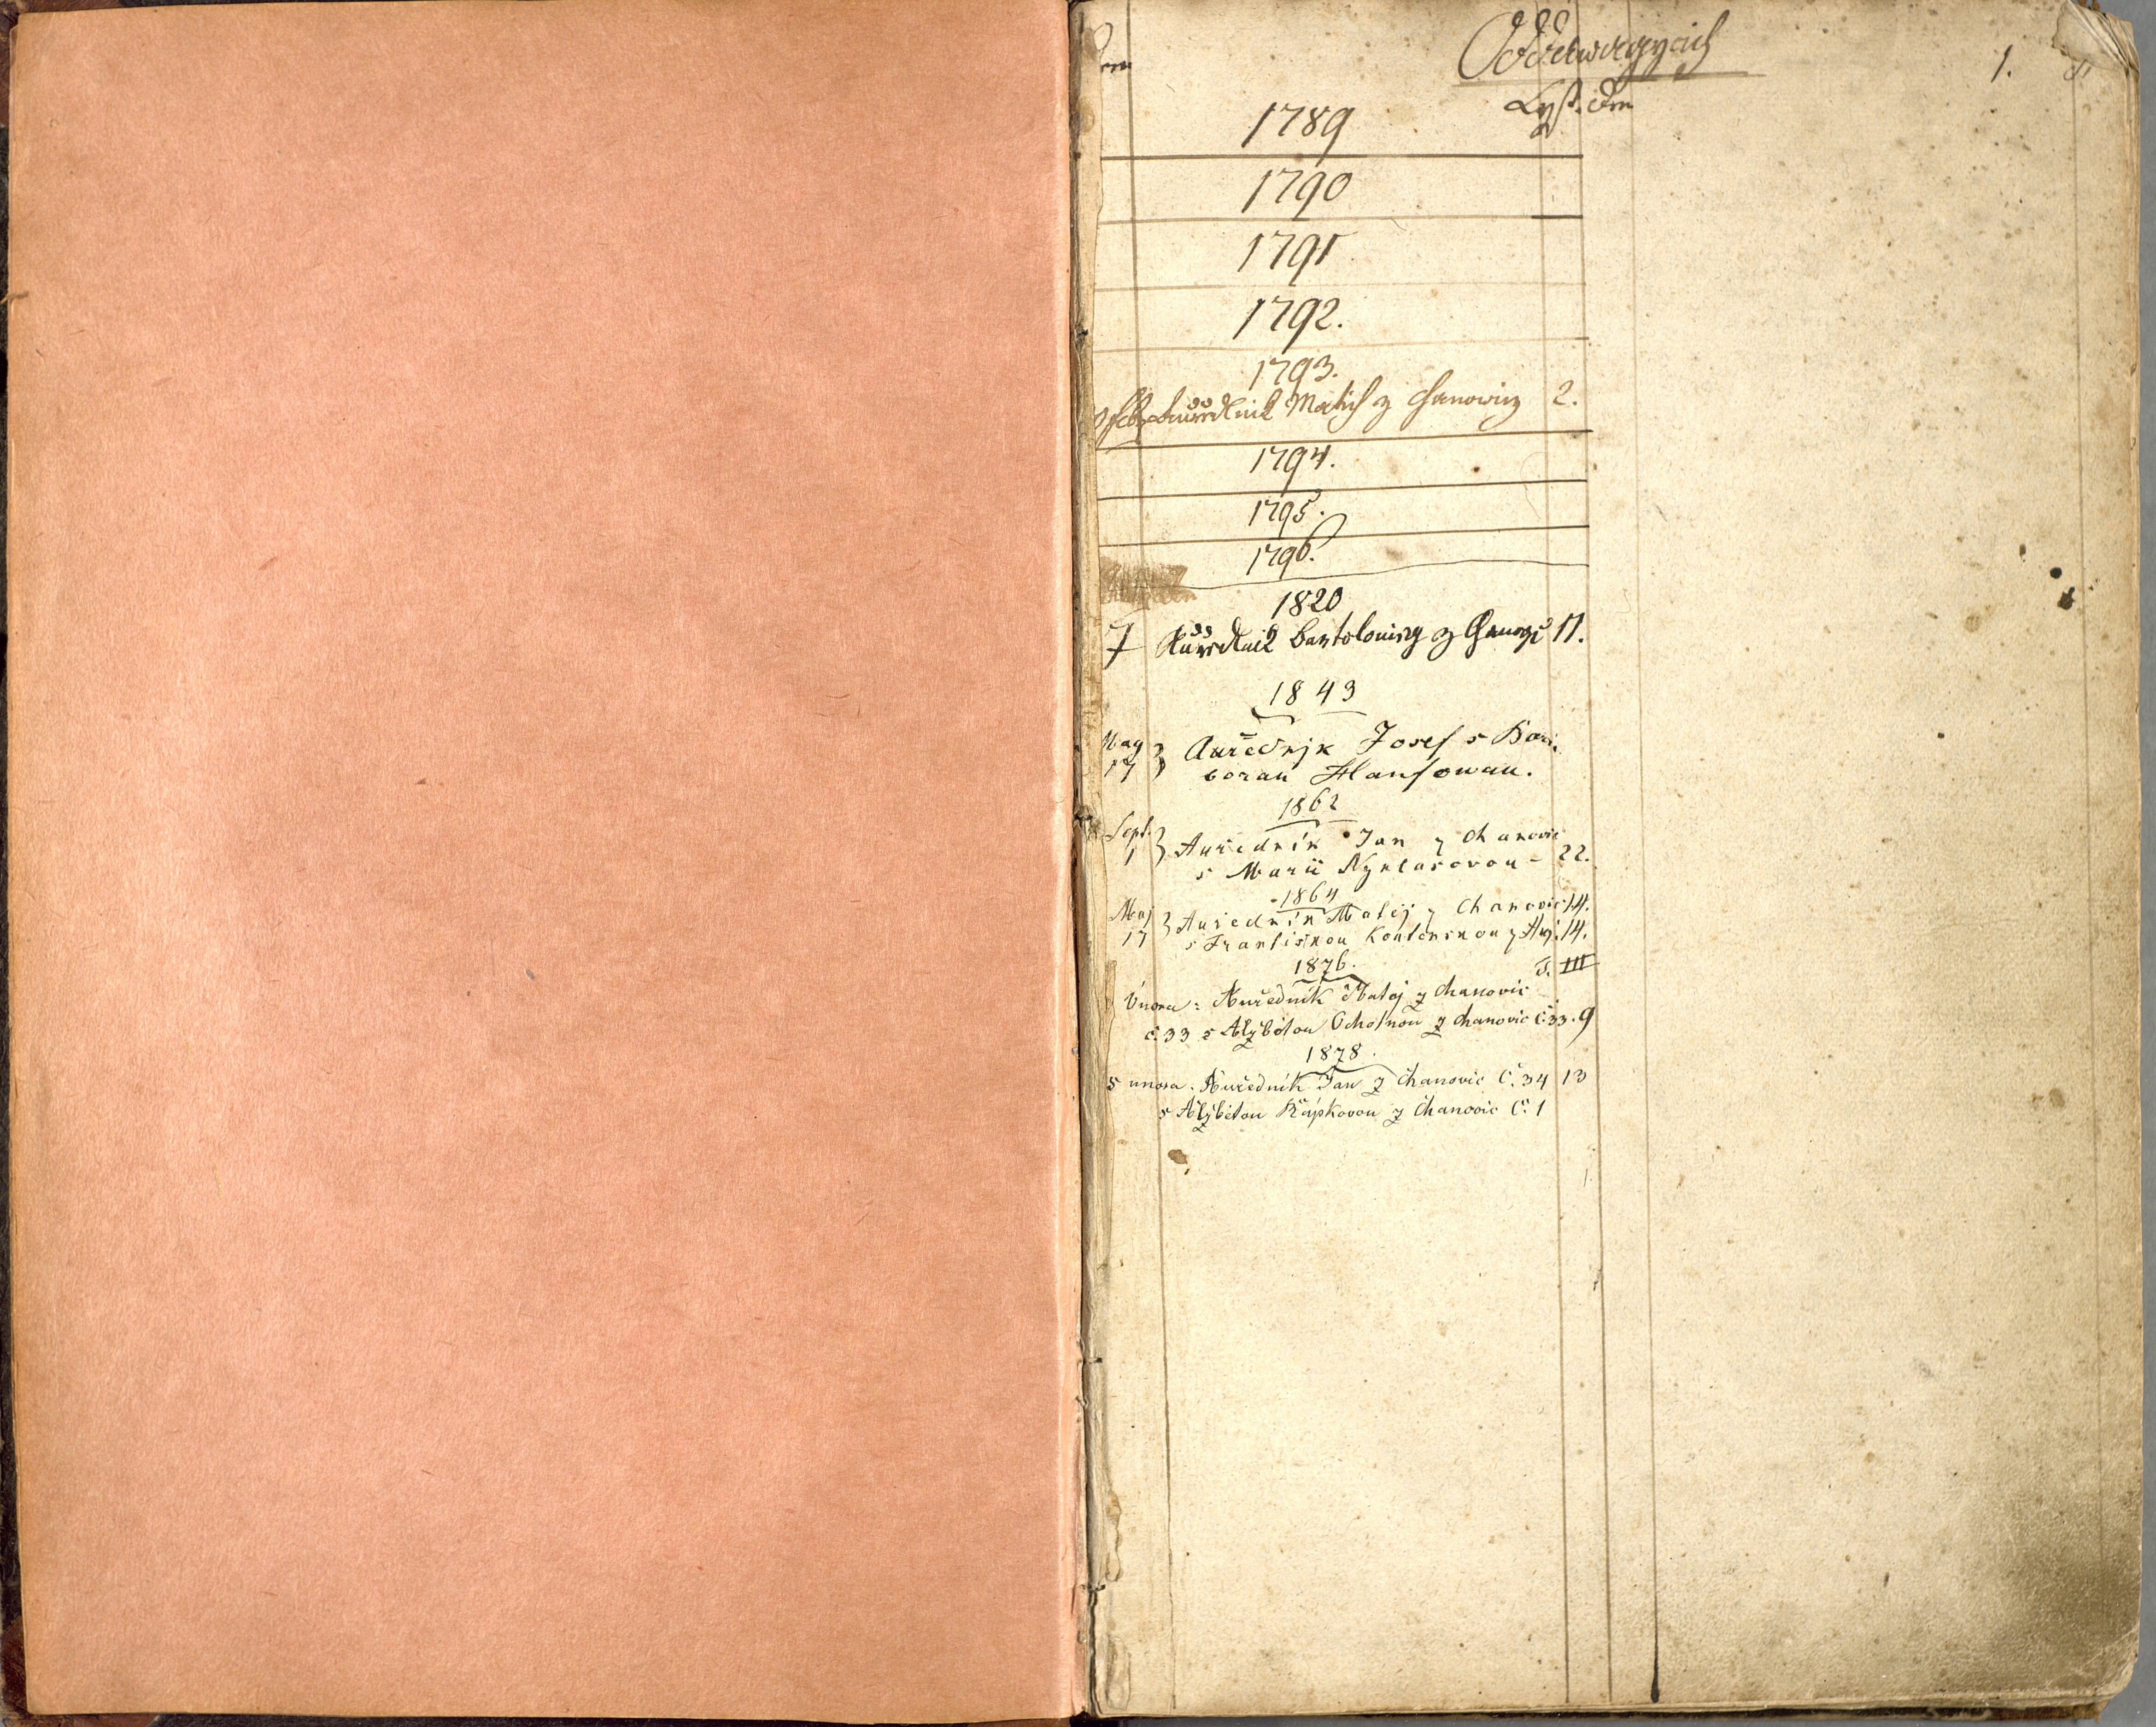 Oddawagycich
1.
Lyst. den
1789
1790
1791
1792.
1793.
Auřednik Matieg z Chanowicz 2.
1794.
1795.
1796.
1820
7 Auřednik Bartolomieg z Chanowic 11.
1843
May 17 } Auřednjk Josef s Bar-
borau Hanſowau.
1862
Sept. 1 } Auředník Jan z Chanovic
s Marií Nyklasovou – 22.
1864
Maj 17 } Auředník Matěj z Chanovic 14.
s Františkou Koutenskou z 14.
1876. T. III
Února: Auředník Matěj z Chanovic
č. 33 s Alžbětou z Chanovic č. 33. 9
1878.
5 února. Auředník Jan z Chanovic č. 34 13
s Alžbětou Řápkovou z Chanovic č. 1